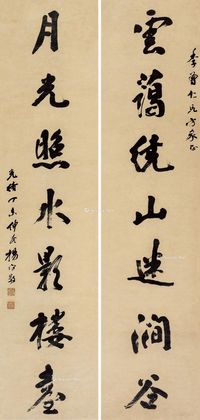 仁兄方家正
雲藹繞山迷澗谷
月光照水影樓臺
光緒丁未仲冬楊守敬